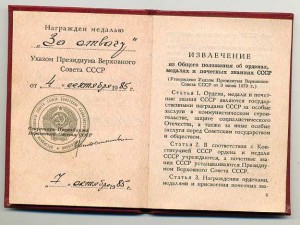 Награжден медалью
„За отвагу"
Указом Президиума Верховного
Совета СССР
от 4 октября 1985 г.
Секретарь Президиума
Верховного Совета СССР
7 октября 85 г.
ИЗВЛЕЧЕНИЕ
из Общего положения об орденах,
медалях и почетных званиях СССР
(Утверждено Указом Президиума Верховного
Совета СССР от 3 июля 1979 г.)
Статья 1. Ордена, медали и почет-
ные звания СССР являются государ-
ственными наградами СССР за особые
заслуги в коммунистическом строи-
тельстве, защите социалистического
Отечества, а также за иные особые
заслуги перед Советским государством
и обществом.
Статья 2. В соответствии с Кон-
ституцией СССР ордена и медали
СССР учреждаются, а почетные зва-
ния СССР устанавливаются Президиу-
мом Верховного Совета СССР.
Статья 3. Награждение орденами,
медалями и присвоение почетных зва-